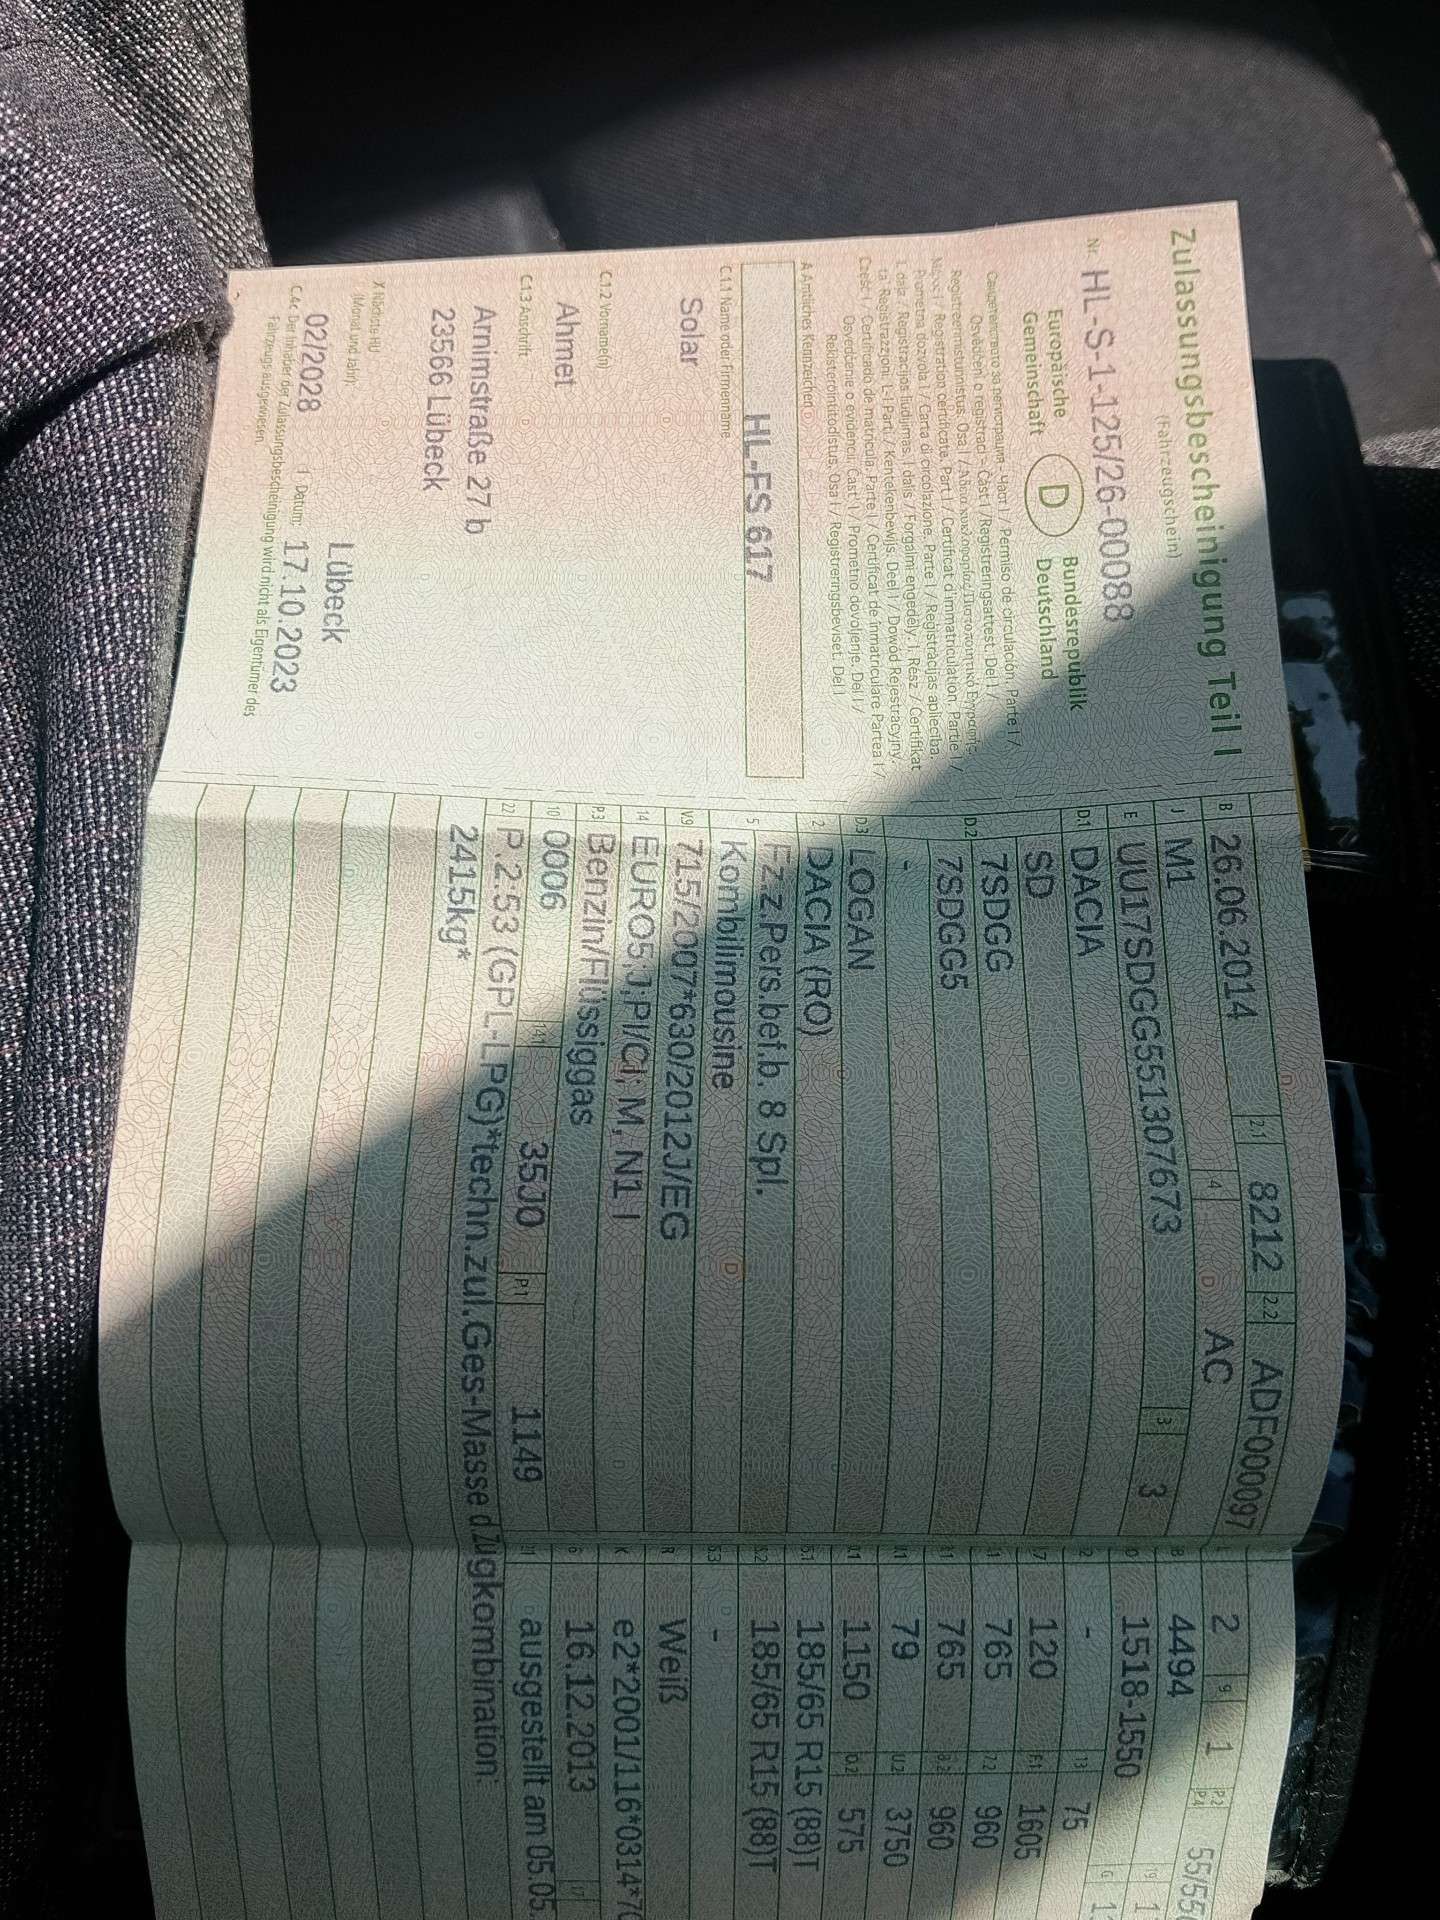 Zulassungsbescheinigung Teil I
(Fahrzeugschein)
Nr. HL-S-1-125/26-00088
Europäische
Gemeinschaft
D
Bundesrepublik
Deutschland
Permiso de circulación. Parte I /
Osvědčení o registraci - Část I / Registreringsattest. Del I /
Registreerimistunnistus. Osa I /
Registration certificate. Part I / Certificat d'immatriculation. Partie I /
Prometna dozvola / Carta di circolazione. Parte I / Reģistrācijas apliecība
I. daļa / Registracijos liudijimas. I dalis / Forgalmi engedély. I. Rész / Ċertifikat
ta' Reġistrazzjoni. L-I Parti. / Kentekenbewijs. Deel I / Dowód Rejestracyjny.
Część I / Certificado de matrícula. Parte I / Certificat de înmatriculare Partea I /
Osvedčenie o evidencii. Časť I / Prometno dovoljenje. Del I /
Rekisteröintitodistus. Osa I / Registreringsbeviset. Del I
A Amtliches Kennzeichen
HL-FS 617
C.1.1 Name oder Firmenname
Solar
C.1.2 Vorname(n)
Ahmet
C.1.3 Anschrift
Arnimstraße 27 b
23566 Lübeck
X Nächste HU
(Monat und Jahr):
02/2028
Lübeck
Datum: 17.10.2023
C.4c Der Inhaber der Zulassungsbescheinigung wird nicht als Eigentümer des
Fahrzeugs ausgewiesen.
B 26.06.2014 2.1 8212 2.2 ADF000097
J M1 4 AC
E UU17SDGG551307673 3 3
D.1 DACIA
SD
D.2 7SDGG
7SDGG5
-
D.3 LOGAN
2 DACIA (RO)
5 Fz.z.Pers.bef.b. 8 Spl.
Kombilimousine
V.9 715/2007*630/2012J/EG
14 EURO5;J;PI/CI; M, N1 I
P.3 Benzin/Flüssiggas
10 0006 14.1 35J0 P.1 1149
22 P.2:53 (GPL-LPG)*techn.zul.Ges-Masse d Zugkombination:
2415kg*
2 9 1 P.2 P.4 55/55
4494
1518-1550 19 1
- 13 75 G
120 F.1 1605
765 7.2 960
765 8.2 960
79 U.2 3750
1150 O.2 575
185/65 R15 (88)T
185/65 R15 (88)T
-
R Weiß
K e2*2001/116*0314*7
6 16.12.2013 17
ausgestellt am 05.05.